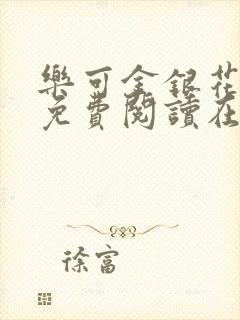 樂可金銀花
免費閱讀在
徐富